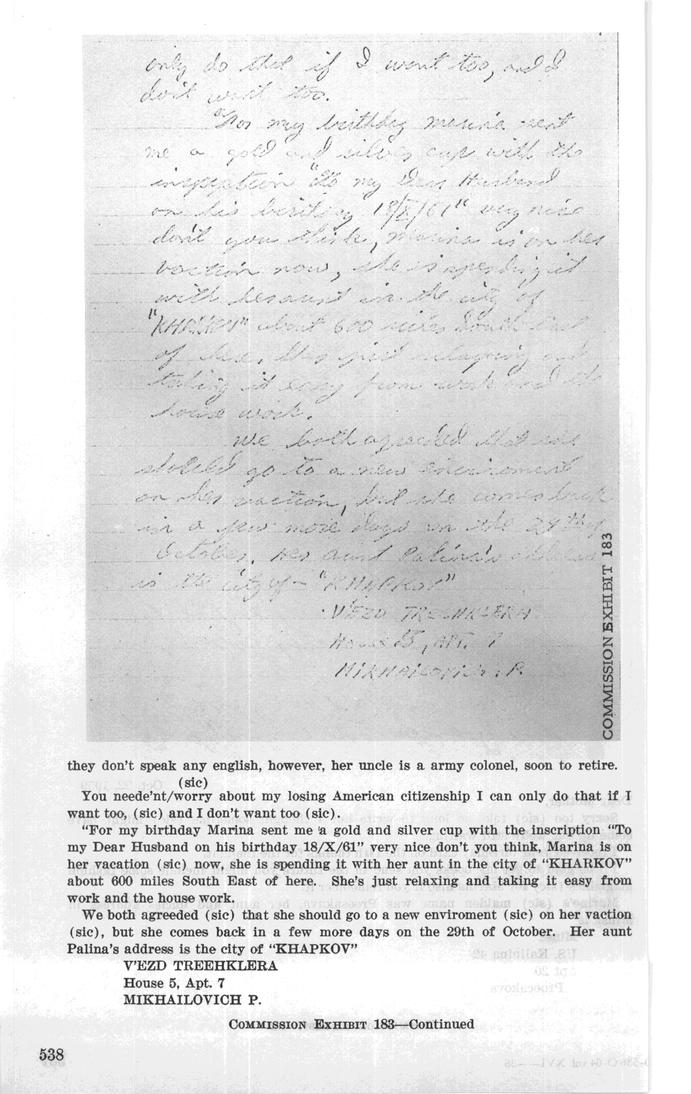 only do that if I want too, and I
don't want too.
"For my birthday marina sent
me a gold and silver cup with the
inscription "To my Dear Husband
on his birthday 18/X/61" very nice
don't you think, marina is on her
vaction now, she is spending it
with her aunt in the city of
"KHARKOV" about 600 miles South East
of here. She's just relaxing and
taking it easy from work and the
house work.
We both agreeded that she
should go to a new enviroment
on her vaction, but she comes back
in a few more days on the 29th of
October. Her aunt Palina's address
is the city of - "KHAPKOV"
V'EZD TREEHKLERA
House 5, APT. 7
MIKHAILOVICH. P.
COMMISSION EXHIBIT 183
they don't speak any english, however, her uncle is a army colonel, soon to retire.
(sic)
You neede'nt/worry about my losing American citizenship I can only do that if I
want too, (sic) and I don't want too (sic).
"For my birthday Marina sent me a gold and silver cup with the inscription "To
my Dear Husband on his birthday 18/X/61" very nice don't you think, Marina is on
her vacation (sic) now, she is spending it with her aunt in the city of "KHARKOV"
about 600 miles South East of here. She's just relaxing and taking it easy from
work and the house work.
We both agreeded (sic) that she should go to a new enviroment (sic) on her vaction
(sic), but she comes back in a few more days on the 29th of October. Her aunt
Palina's address is the city of "KHAPKOV"
V'EZD TREEHKLERA
House 5, Apt. 7
MIKHAILOVICH P.
COMMISSION EXHIBIT 183—Continued
538